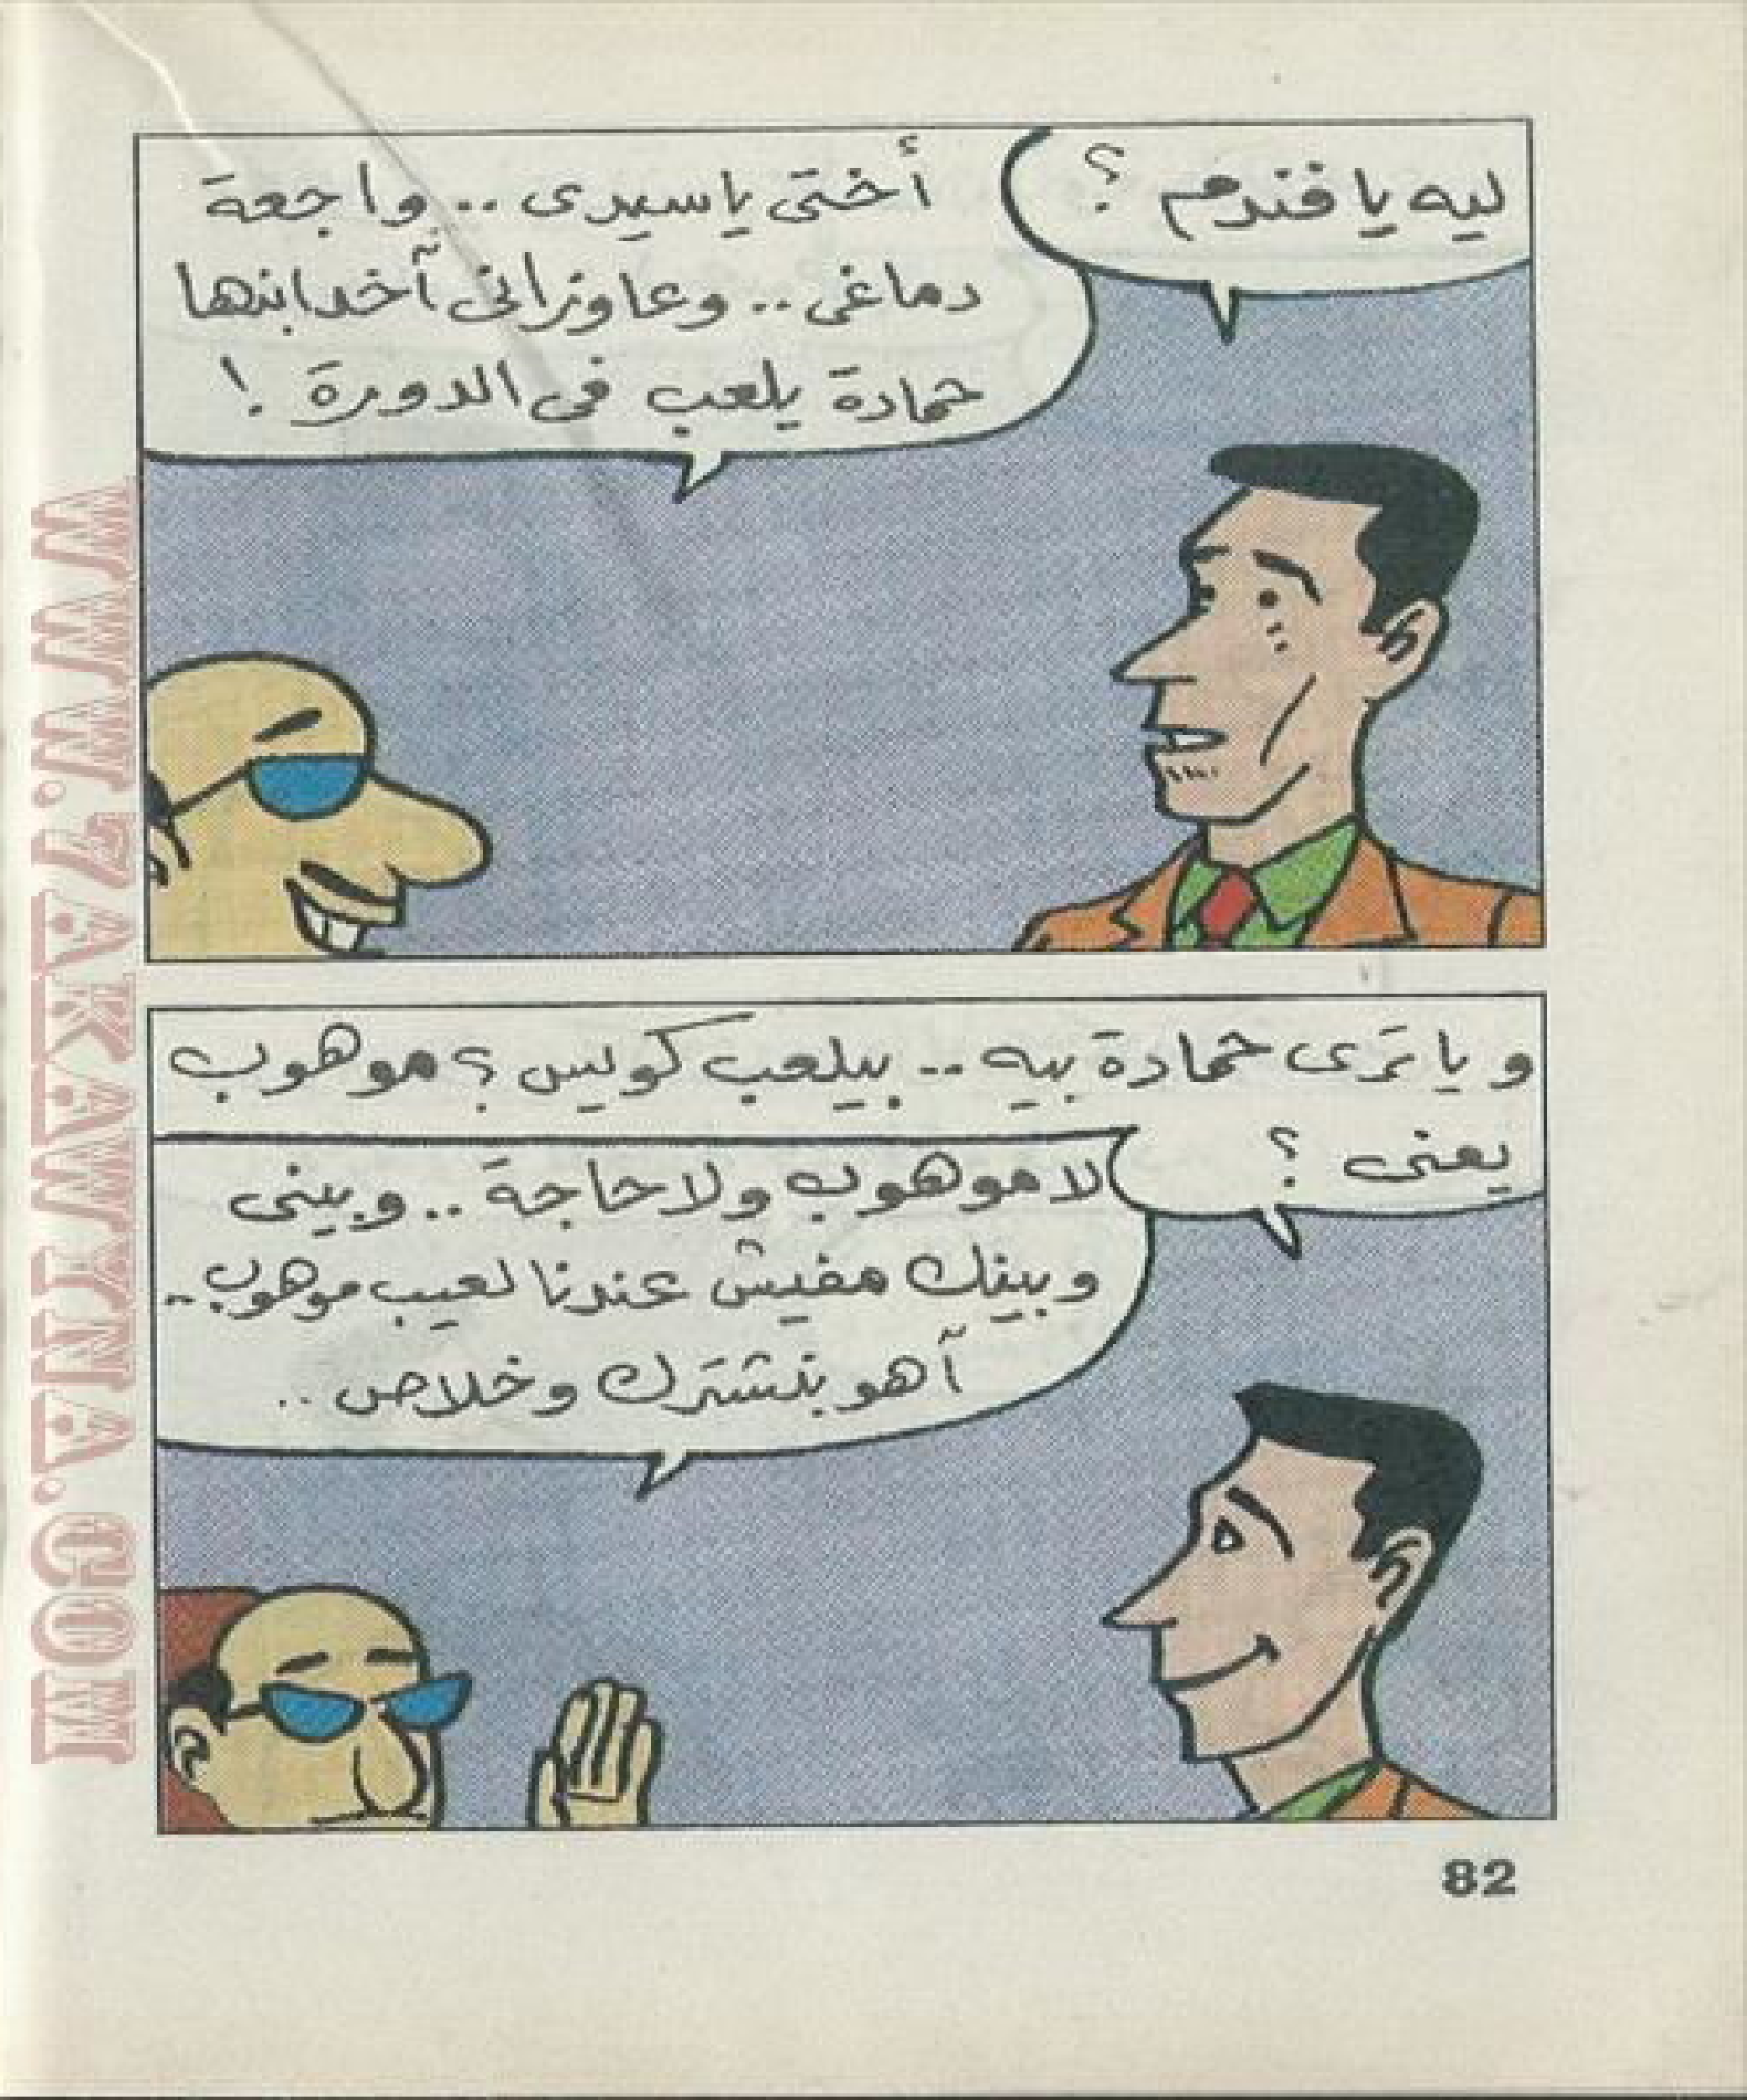 ليه يا فندم ؟
أختى ياسيدى .. واجعة
دماغى .. وعاوزانى آخد ابنها
حمادة يلعب فى الدورة !
و يا ترى حمادة بيه .. بيلعب كويس ؟ موهوب
يعنى ؟
لا موهوب ولا حاجة .. وبينى
وبينك مفيش عندنا لعيب موهوب ..
آهو بنشترك وخلاص ..
82
WWW.ZAKAWYNA.COM